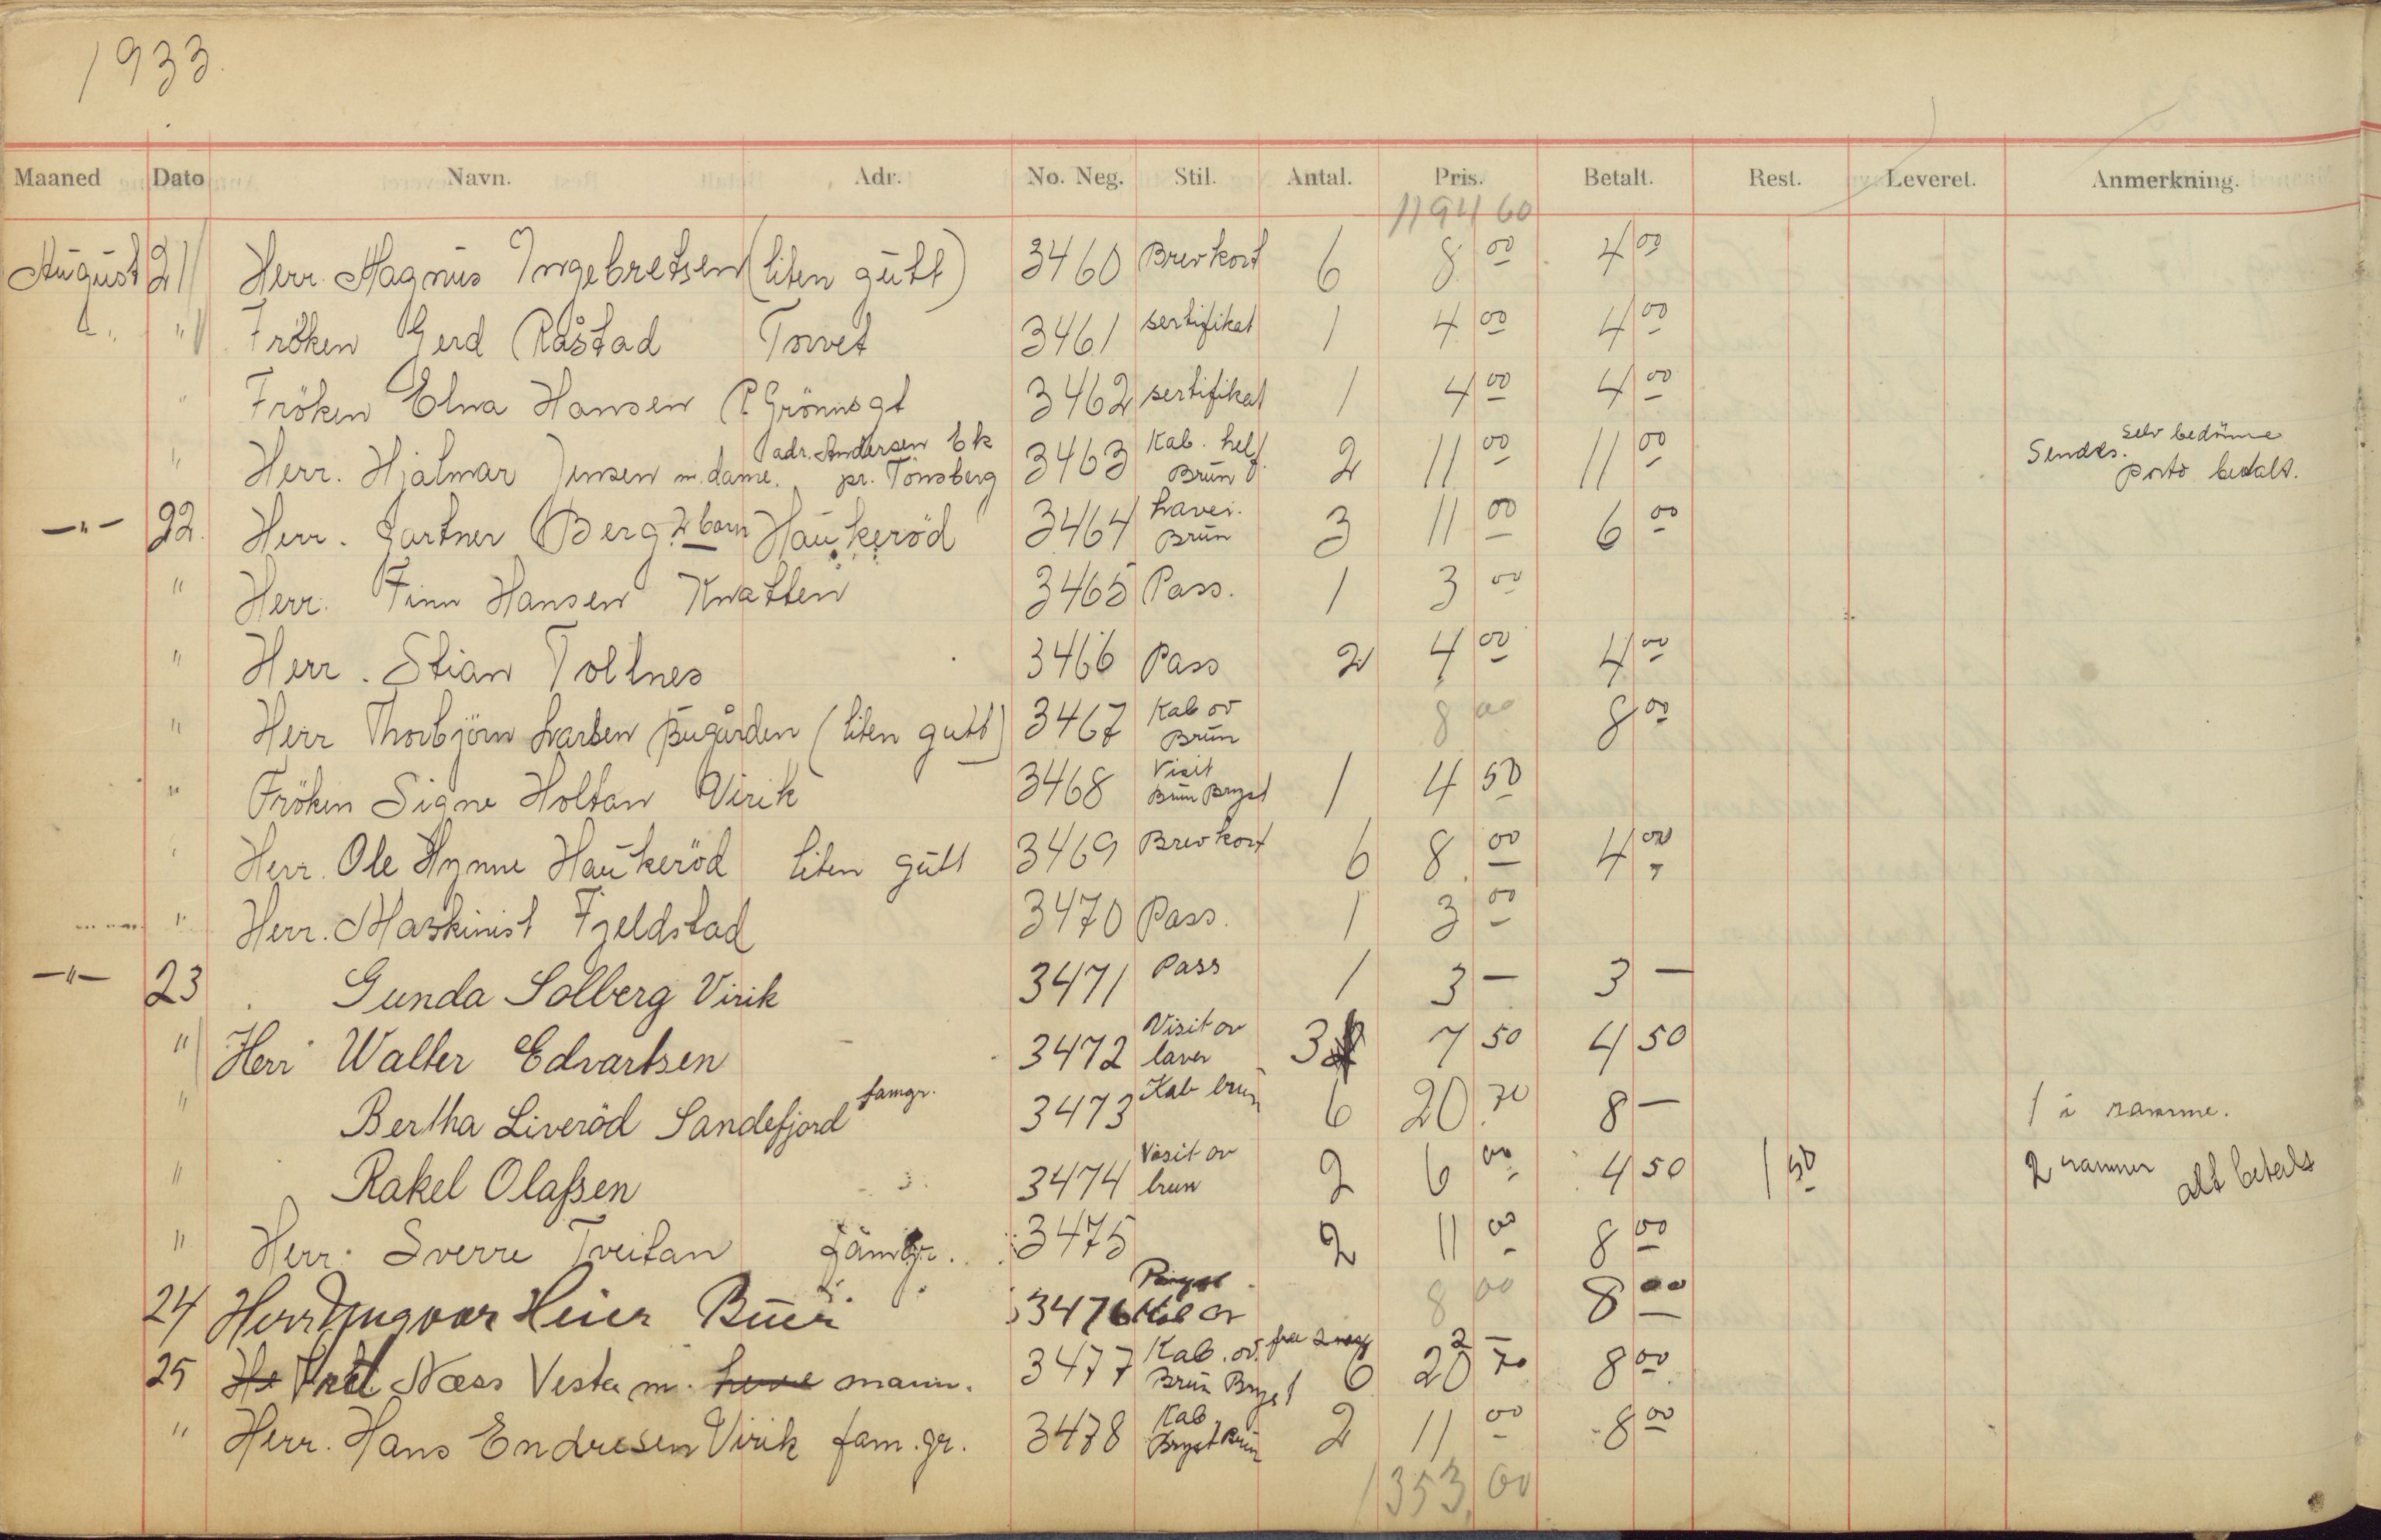 1933.
Maaned Dato Navn. Adr. No. Neg. Stil. Antal. Pris. Betalt. Rest. Leveret. Anmerkning.
1194 60
August 21 Herr. Magnus Ingebretsen (liten gutt) 3460 Brevkort 6 8 00 4 00
" " Fröken Gerd Råstad Torvet 3461 sertifikat 1 4 00 4 00
" Fröken Elna Hansen P. Grönnsgt 3462 sertifikat 1 4 00 4 00
" Herr. Hjalmar Jensen m. dame. adr. Andersen Ek pr. Tönsberg 3463 Kab. helf. Brun 2 11 00 11 00 Sendes. selv bedömme porto betalt.
—"— 22. Herr. Gartner Berg 2 barn Haukeröd 3464 Brun 3 11 00 6 00
" Herr. Finn Hansen Knatten 3465 Pass. 1 3 00
" Herr. Stian Tollnes 3466 Pass 2 4 00 4 00
" Herr Thorbjörn Larsen Bugården (liten gutt) 3467 Kab ov Brun 8 00 8 00
" Fröken Signe Holtan Virik 3468 Visit Brun Bryst 1 4 50
" Herr. Ole Hynne Haukeröd liten gutt 3469 Brevkort 6 8. 00 4 00
" Herr. Maskinist Fjeldstad 3470 Pass. 1 3 00
—"— 23 Gunda Solberg Virik 3471 Pass 1 3 — 3 —
" Herr Walter Edvartsen 3472 Visit ov laver 3 7 50 4 50
" Bertha Liveröd Sandefjord famgr. 3473 Kab brun 6 20. 70 8 — 1 i ramme.
" Rakel Olafsen 3474 Visit ov brun 2 6 00 4 50 1 50 2 rammer alt betalt
" Herr. Sverre Tveitan famgr. 3475 2 11 00 8 00
24 Herr Yngvar Heier Buer 3476 Bryst Kab ov 8 00 8 00
25 He Næss Vesta m. mann. 3477 Kab. ov. fra 2 neg Brun Bryst 6 20 2 — 70 8 00
" Herr. Hans Endresen Virik fam. gr. 3478 Kab Bryst Brun 2 11 00 8 00
1353. 00